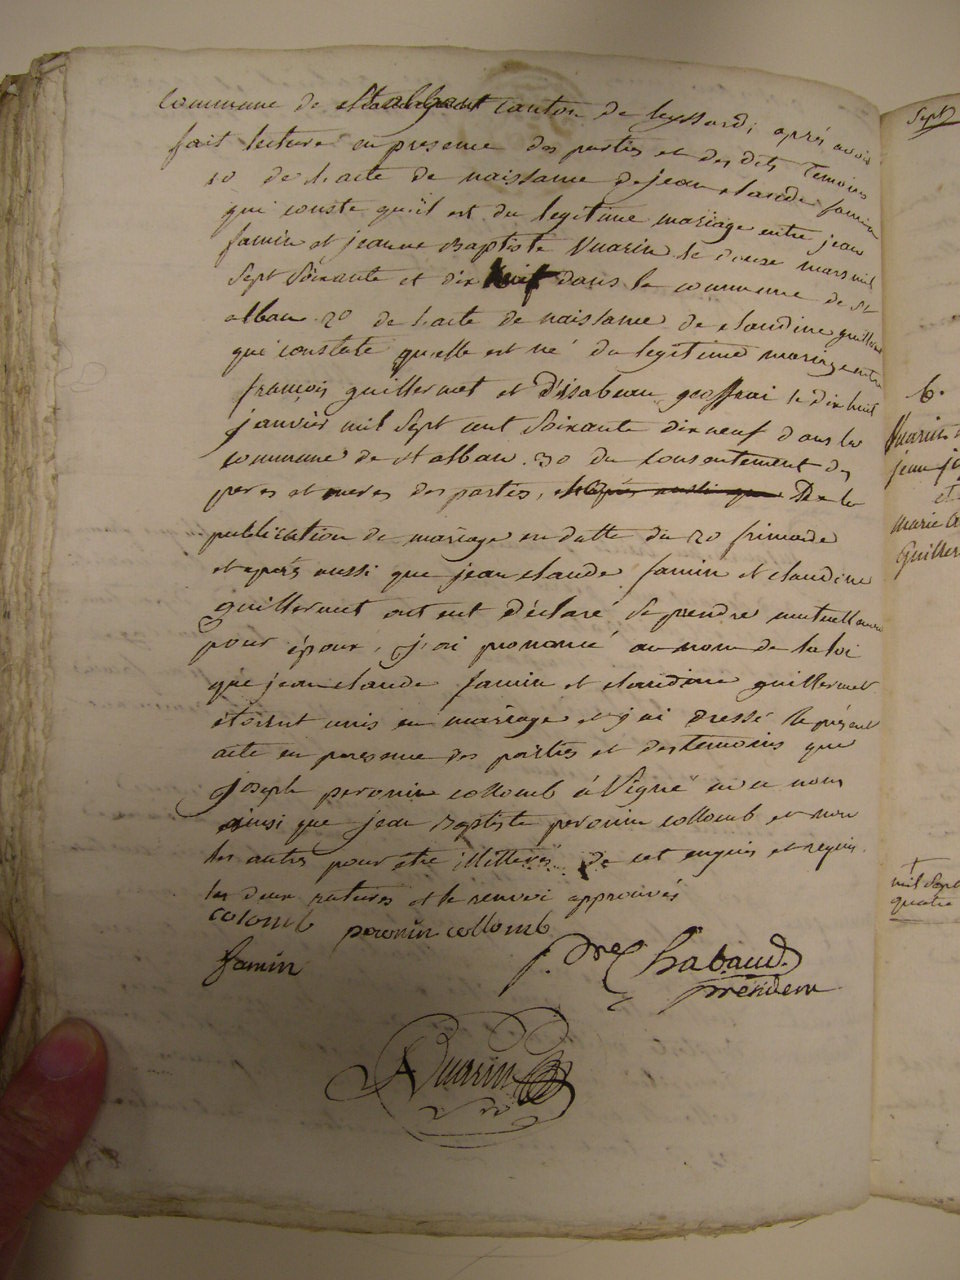 commune de canton de leyssard; après avoir
fait lecture en presence des parties et des dits Temoins
1o de l'acte de naissance de jean claude famin
qui conste qu'il est du legitime mariage entre jean
famin et jeanne Baptiste Vuarin le douse mars mil
Sept Soixante et dix huit dans la commune de St
alban 2o de l'acte de naissance de claudine guillermet
qui constate qu'elle est né du legitime mariage entre
françois guillermet et d'isabeau geoffrai le dix huit
janvier mil Sept cent Soixante dix neuf dans la
commune de st alban. 3o du consentement des
peres et meres des parties, De la
publication de mariage en datte du 20 frimaire
et après aussi que jean claude famin et claudine
guillermet ont eut déclaré se prendre mutuellement
pour époux, j'ai prononcé au nom de la loi
que jean claude famin et claudine guillermet
étoient unis en mariage et j'ai dressé le présent
acte en presence des parties et des temoins que
joseph peronin collomb à Signé avec nous
ainsi que jean Baptiste peronin collomb et non
les autres pour etre illitterés de cet enquis et requis
les deux ratures et le renvoi approuvés
colomb peronin collomb
famin
Chabaud
président
Vuarin
Sept
6.
Vuarin
jean
et
marie
Guiller
mil Sept
quatre